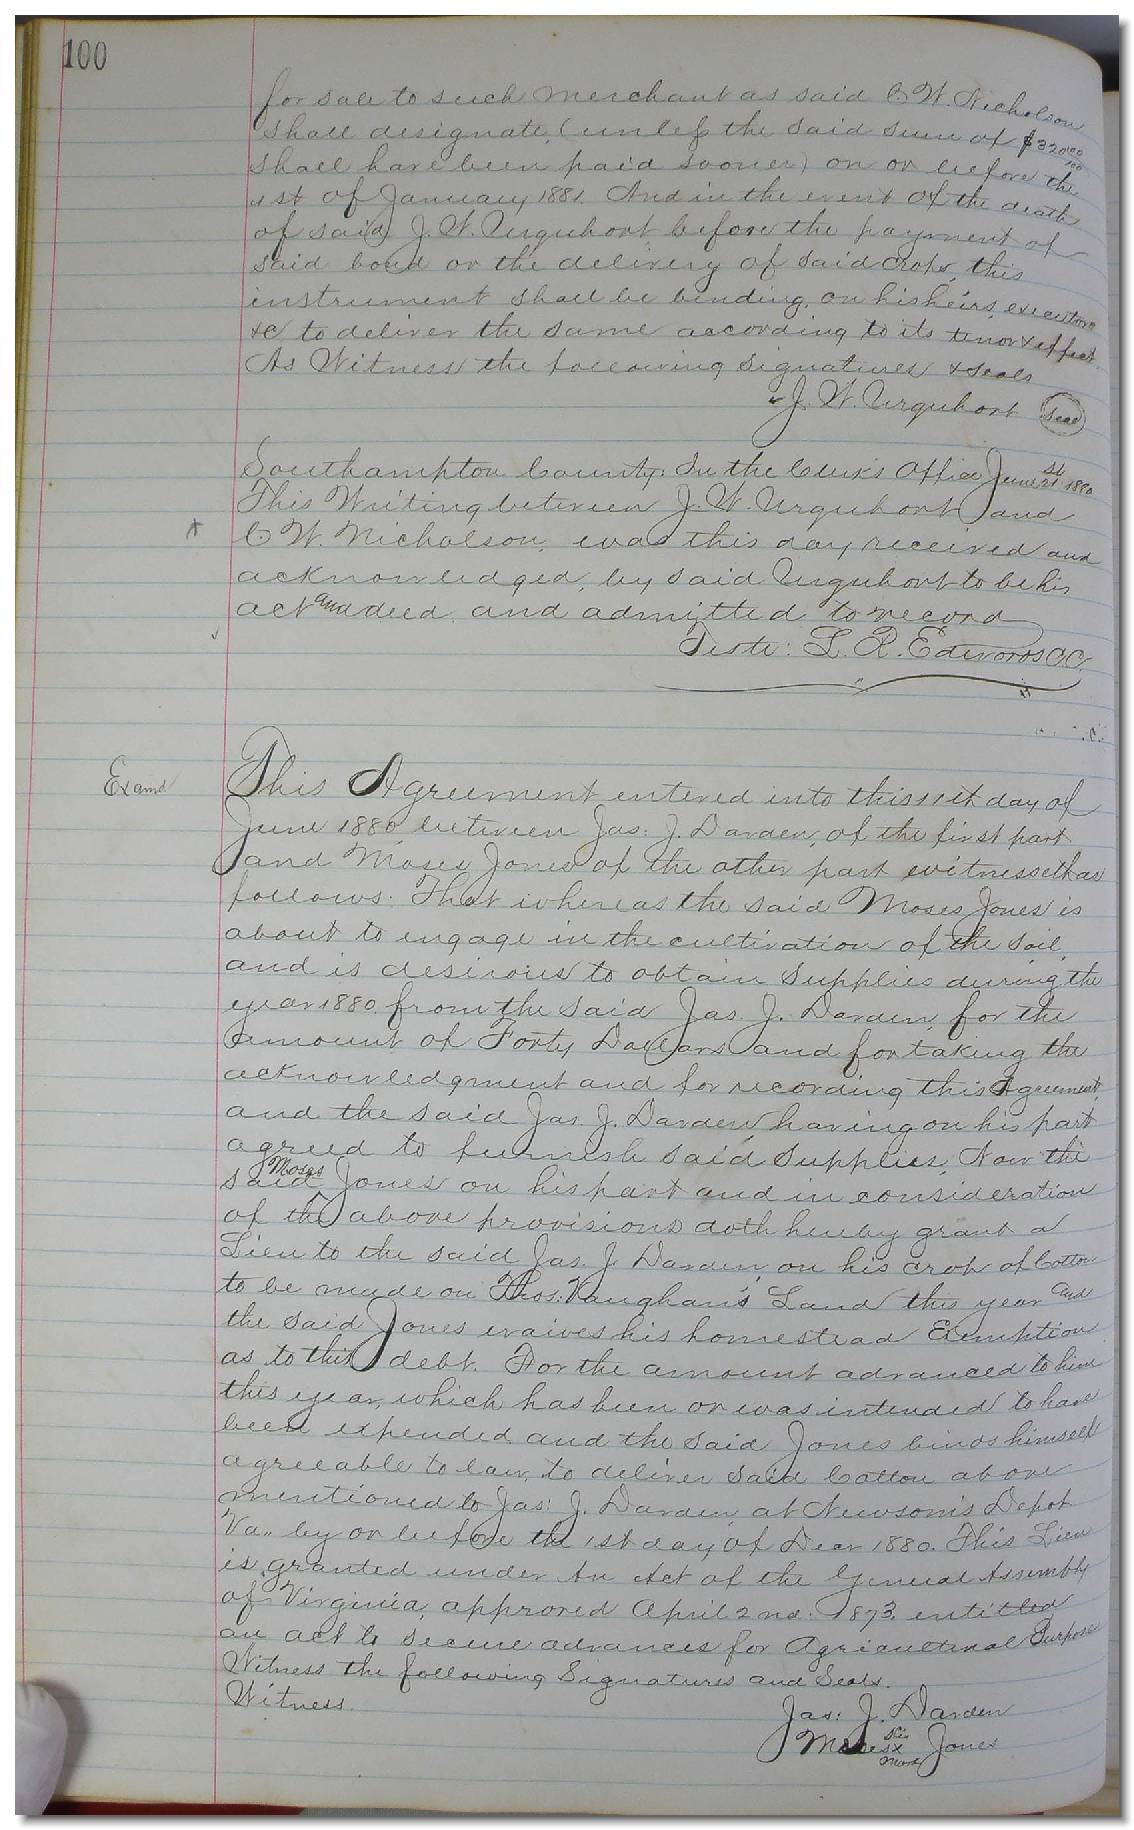 100
for sale to such Merchant as said C. W. Nicholson
shall designate, (unless the said sum of $320 00/100
shall have been paid sooner) on or before the
1st of January 1881. And in the event of the death
of said J. W. Urquhart before the payment of
said bond or the delivery of said crops, this
instrument shall be binding on his heirs, executors
&c to deliver the same according to its tenor & effect.
As Witness the following signatures & seals
J. W. Urquhart Seal
Southampton County: In the Clerk's Office June 1st 1880
This Writing between J. W. Urquhart and
C W. Nicholson, was this day received and
acknowledged, by said Urquhart to be his
act and deed, and admitted to record
Teste: L. R. Edwards CC.
Examd
This Agreement entered into this day of
June 1880 between Jas: J. Darden, of the first part
and Moses Jones of the other part witnesseth as
follows: That whereas the said Moses Jones is
about to engage in the cultivation of the soil,
and is desirous to obtain Supplies during the
year 1880 from the said Jas. J. Darden, for the
amount of Forty Dollars and for taking the
acknowledgment and for recording this Agreement,
and the said Jas. J. Darden, having on his part
agreed to furnish said Supplies, Now the
said Moses Jones on his part and in consideration
of the above provisions doth hereby grant a
Lien to the said Jas. J. Darden, on his crop of Cotton
to be made on Thos. Vaughan's Land this year and
the said Jones waives his homestead Exemption
as to this debt. For the amount advanced to him
this year, which has been or was intended to have
been expended and the said Jones binds himself
agreeable to law, to deliver said Cotton above
mentioned to Jas: J. Darden, at Newsom's Depot
Va., by or before the 1st day of Decr 1880. This Lien
is granted under An Act of the General Assembly
of Virginia, approved April 2nd. 1873 entitled
an act to secure advances for Agricultural Purpose
Witness the following Signatures and Seals.
Witness.
Jas: J. Darden
Moses his x mark Jones